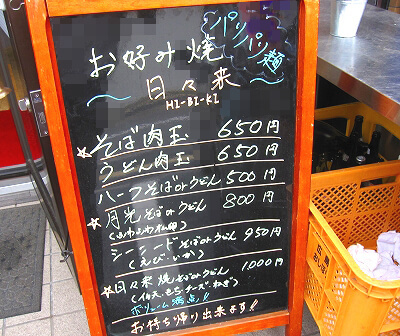 パリパリ麺
お好み焼
～日々来～
HI-BI-KI
☆そば肉玉 650円
うどん肉玉 650円
ハーフそばorうどん 500円
☆月光そばorうどん 800円
(ふわふわ仕上)
シーフードそばorうどん 950円
(えび・いか)
☆日々来焼そばorうどん 1000円
(イカ天、もち、チーズ、ねぎ)
ボリューム満点!!
お持ち帰り出来ます!!